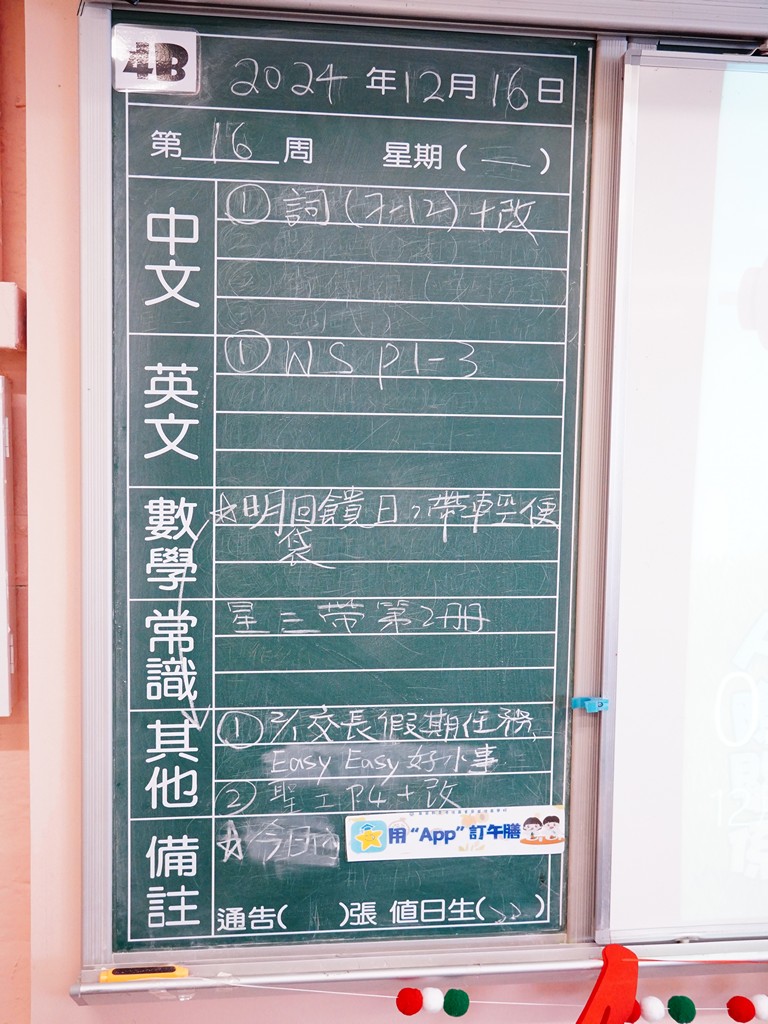 4B
2024 年 12 月 16 日
第 16 周 星期 ( 一 )
中文
① 詞 (7-12) + 改
英文
① WS P1-3
數學
☆明回饋日，帶輕便
袋
常識
星三帶第2冊
其他
① 2/1交長假期任務,
Easy Easy 好小事
② 聖工P4 + 改
備註
☆今日
用 "App" 訂午膳
通告( )張 值日生( )